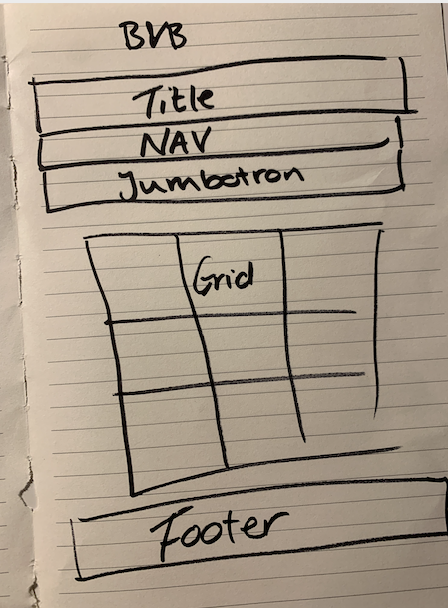 BVB
Title
NAV
Jumbotron
Grid
Footer